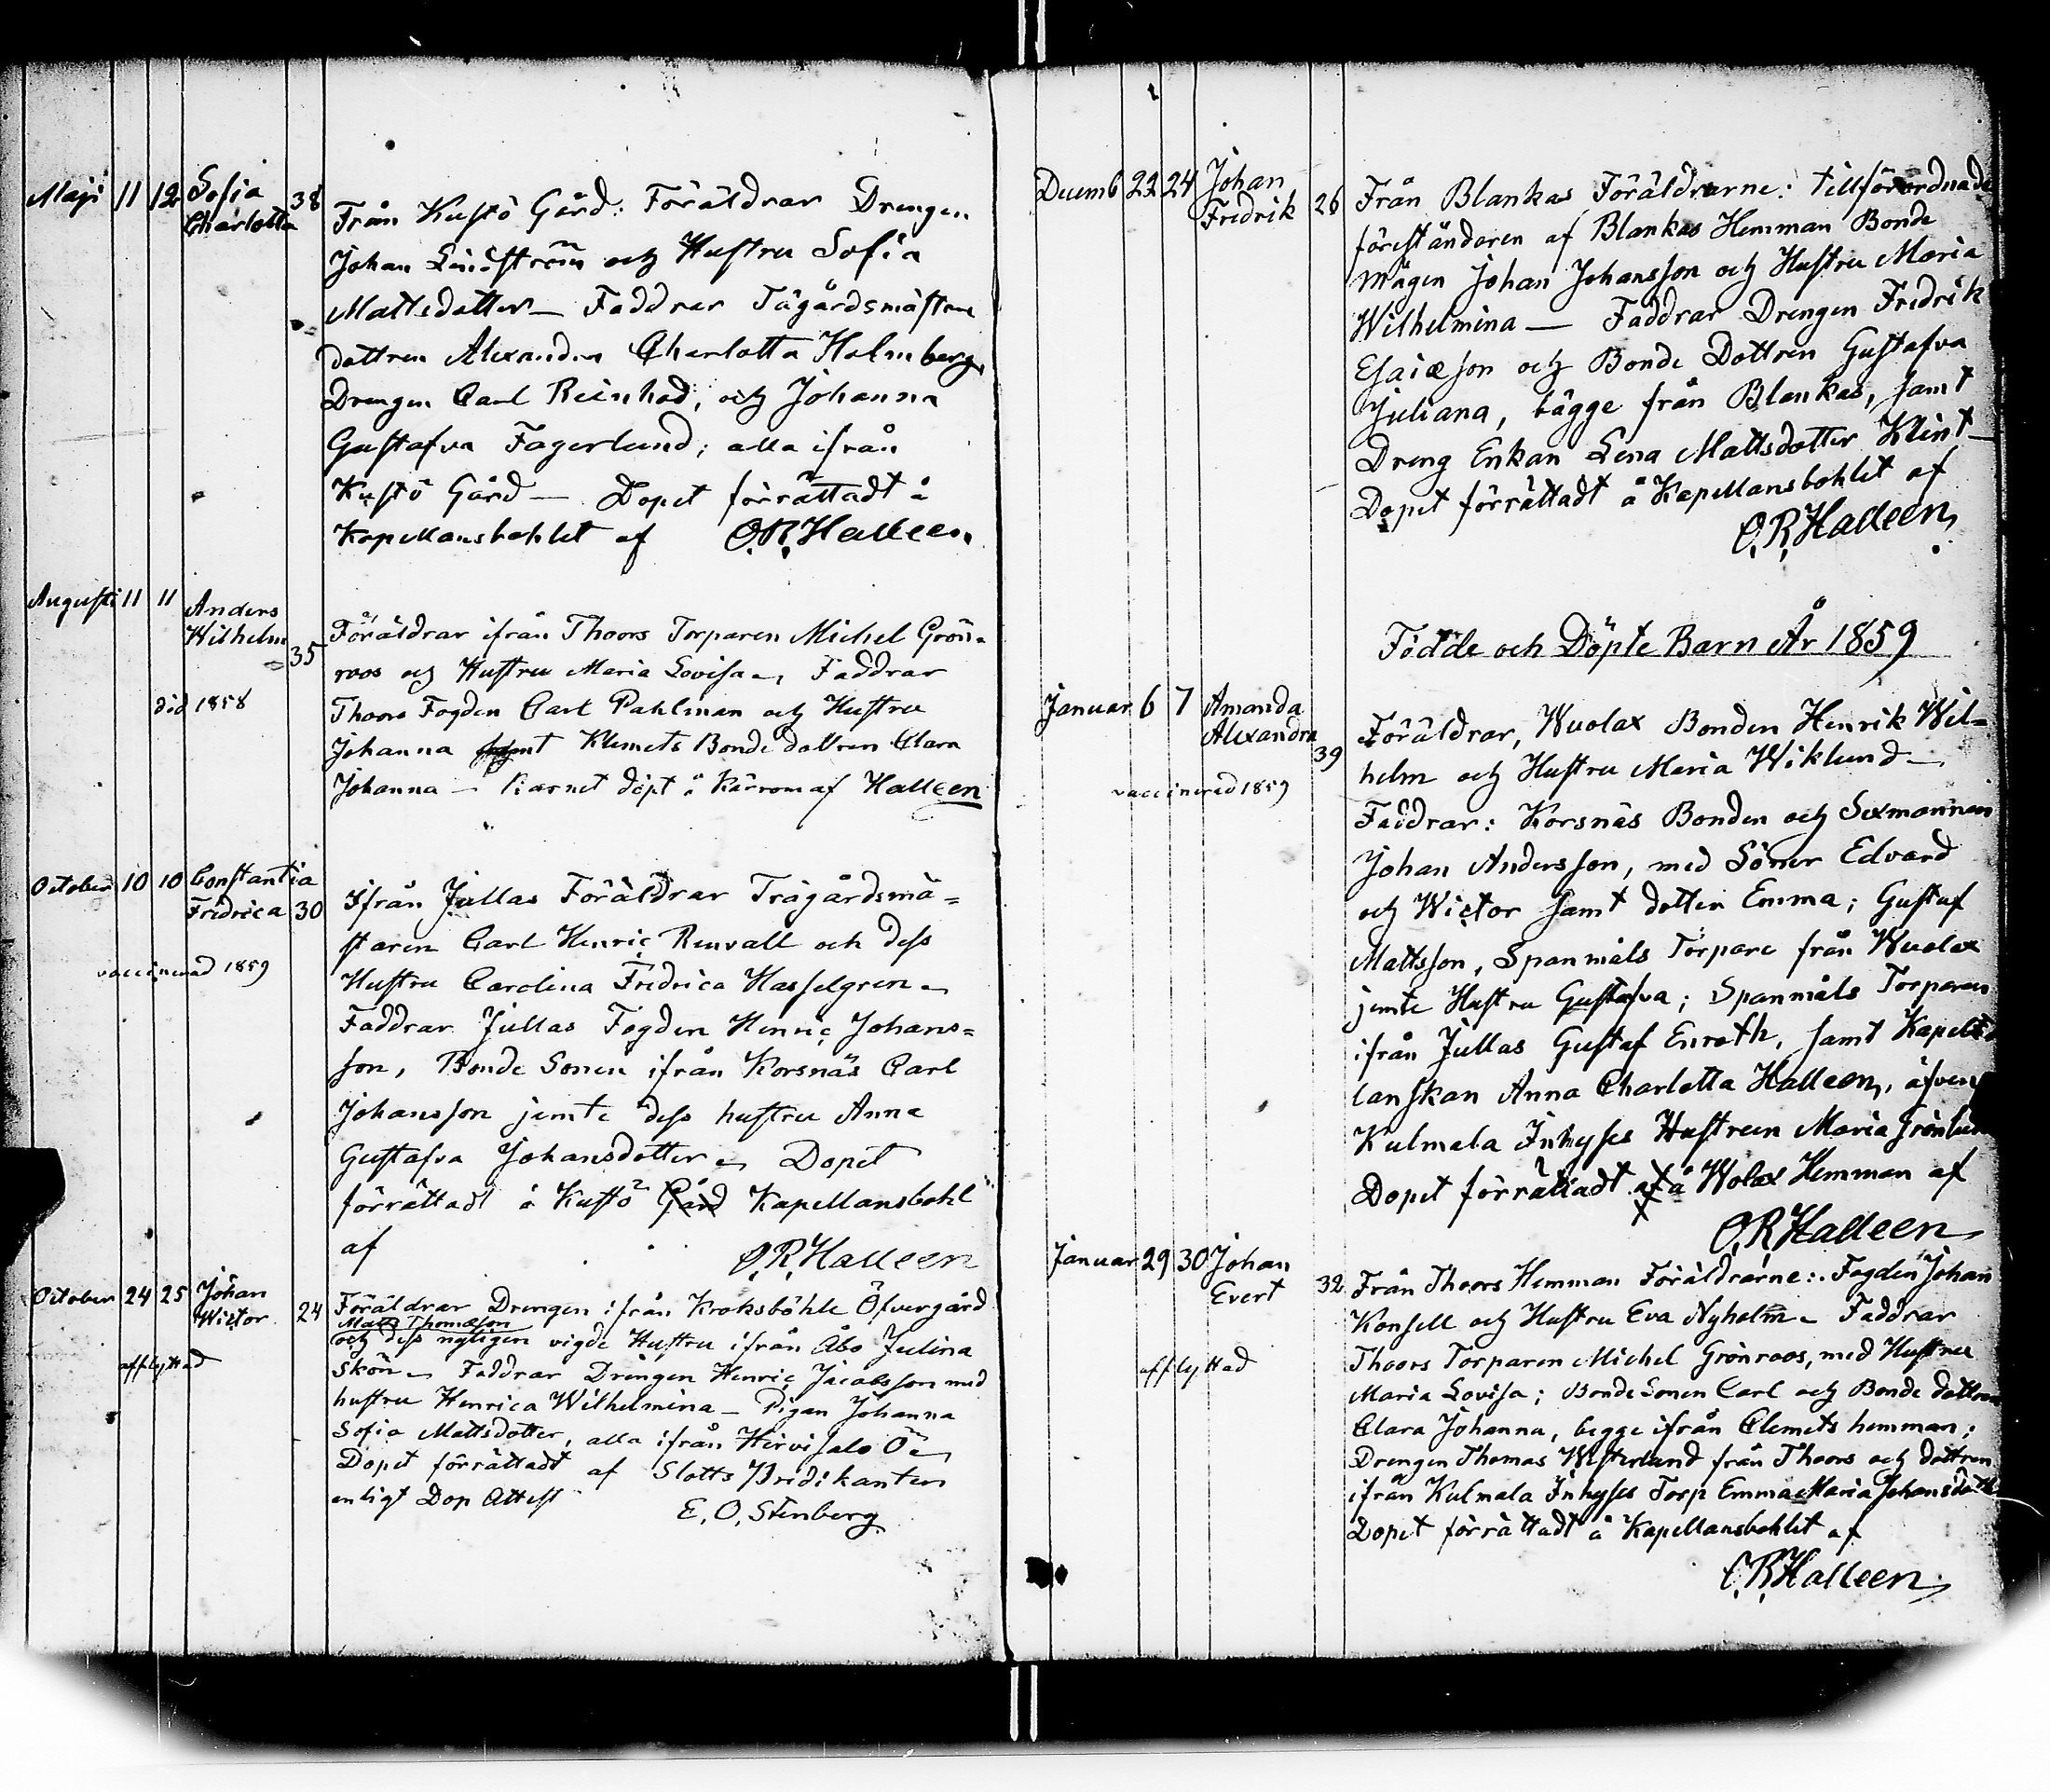 Maji 11 12 Sofia Charlotta 38
Från Kustö Gård: Föräldrar Drengen
Johan Lindström och Hustru Sofia
Mattsdotter — Faddrar Tägårdsmästare
dottren Alexandra Charlotta Holmberg,
Drengen Carl Reinhod, och Johanna
Gustafva Fagerlund; alla ifrån
Kustö Gård — Dopet förrättadt å
Kapellansbohlet af O.R.Halleen,
Augusti 11 11 Anders Wilhelm 35
död 1858
Föräldrar ifrån Thoors Torparen Michel Grön-
roos och Hustru Maria Lovisa — Faddrar
Thoors Fogden Carl Pahlman och Hustru
Johanna samt Klemets Bonde dottren Clara
Johanna — Barnet döpt å Kärrom af Halleen
October 10 10 Constantia Fredrica 30
vaccinerad 1859
Ifrån Jullas Föräldrar Trägårdsmä=
staren Carl Henric Renvall och dess
Hustru Carolina Fredrica Hasselgren —
Faddrar Jullas Fogden Henric Johans=
son, Bonde Sonen ifrån Korsnäs Carl
Johansson jemte dess hustru Anna
Gustafva Johansdotter — Dopet
förrättadt å Kustö Gård Kapellansbohl
af O.R.Halleen
October 24 25 Johan Wictor 24
afflyttad
Föräldrar Drengen ifrån Kroksböhle Öfvergård
Matts Thomasson
och dess nyligen vigde Hustru ifrån Åbo Julina
Skön — Faddrar Drengen Henric Jacobsson med
hustru Henrica Wilhelmina — Pigan Johanna
Sofia Mattsdotter, alla ifrån Hirvisalo Ö
Dopet förrättadt af Slotts Predikanten
enligt Dop Attest E. O. Stenberg
Decemb 22 24 Johan Fredrik 26
Från Blankas Föräldrarne: tillförordnade
föreståndaren af Blankas Hemman Bonde
Mågen Johan Johansson och Hustru Maria
Wilhelmina — Faddrar Drengen Fredrik
Esaiæson och Bonde Dottren Gustafva
Juliana, bägge från Blankas, samt
Dreng Enkan Lena Mattsdotter Klint —
Dopet förrättadt å Kapellansbohlet af
O.R.Halleen,
Födde och Döpte Barn År 1859
Januar 6 7 Amanda Alexandra 39
vaccinerad 1859
Föräldrar, Wuolax Bonden Henrik Wil=
helm och Hustru Maria Wiklund —
Faddrar: Korsnäs Bonden och Sexmannen
Johan Andersson, med Söner Edvard
och Wictor samt dotter Emma; Gustaf
Mattsson, Spanmåls Torpare från Wuolax
jemte Hustru Gustafva; Spanmåls Torparen
ifrån Jullas Gustaf Enroth, samt Kapel
lanskan Anna Charlotta Halleen, äfven
Kulmala Inhyses Hustrun Maria Grönlun
Dopet förrättadt af å Wolax Hemman af
O.R.Halleen
Januar 29 30 Johan Evert 32
afflyttad
Från Thoors Hemman Föräldrarne: Fogden Johan
Konsell och Hustru Eva Nyholm — Faddrar
Thoors Torparen Michel Grönroos, med Hustru
Maria Lovisa; Bonde Sonen Carl och Bonde dottren
Clara Johanna, begge ifrån Clemets hemman;
Drengen Thomas Westerlund från Thoors och dottren
ifrån Kulmala Inhyses Torp Emma Maria Johansdotter
Dopet förrättadt å Kapellansbohlet af
O.R.Halleen